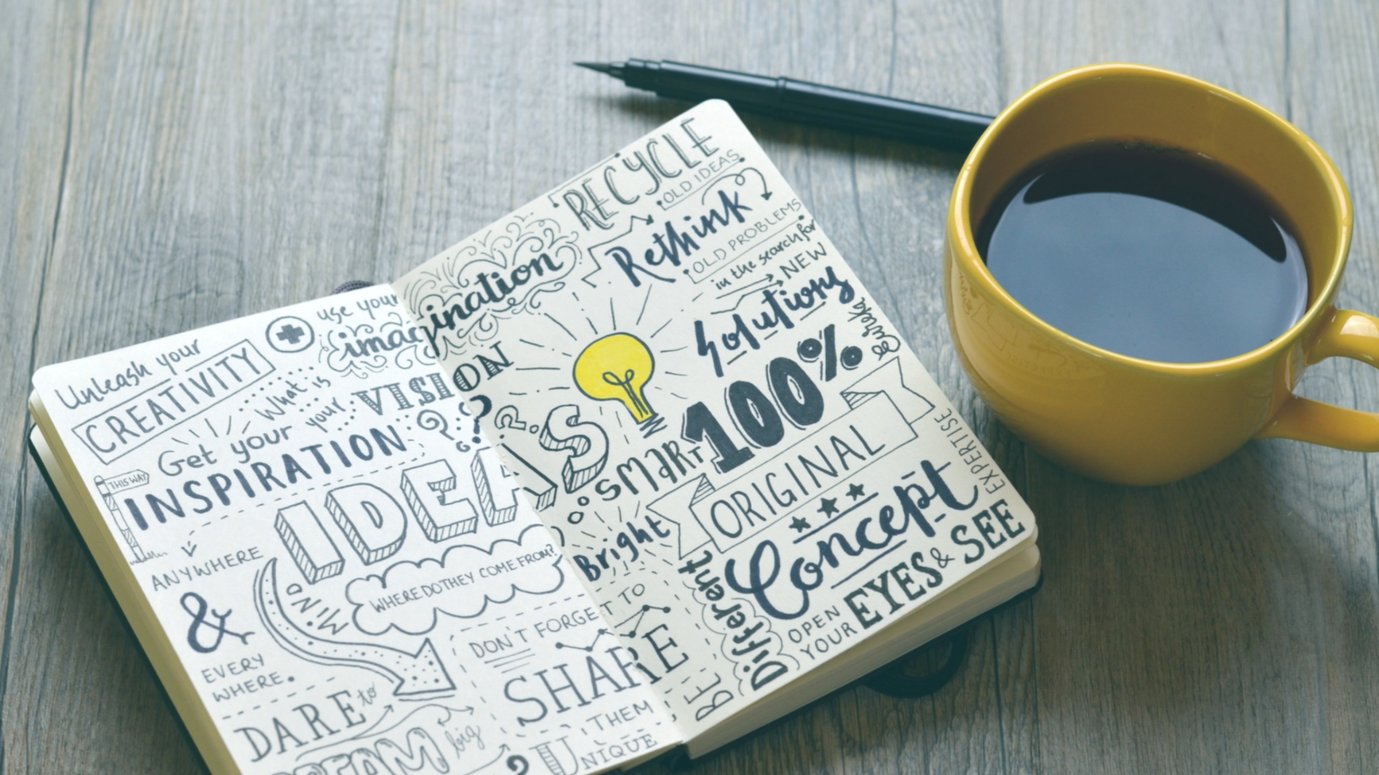 Unleash your
CREATIVITY
use your
imagination
What is
your
VISION
Get your
INSPIRATION
THIS WAY
IDEAS
ANYWHERE
&
EVERY
WHERE.
MIND
WHERE DO THEY COME FROM?
DON'T FORGET TO
SHARE
THEM
DARE to
DREAM
big
BE
U
UNIQUE
RECYCLE
OLD IDEAS
Rethink
OLD PROBLEMS
in the search for
NEW
Solutions
eureka
SMART
100%
ORIGINAL
Bright
Concept
EXPERTISE
Different
OPEN
YOUR
EYES & SEE